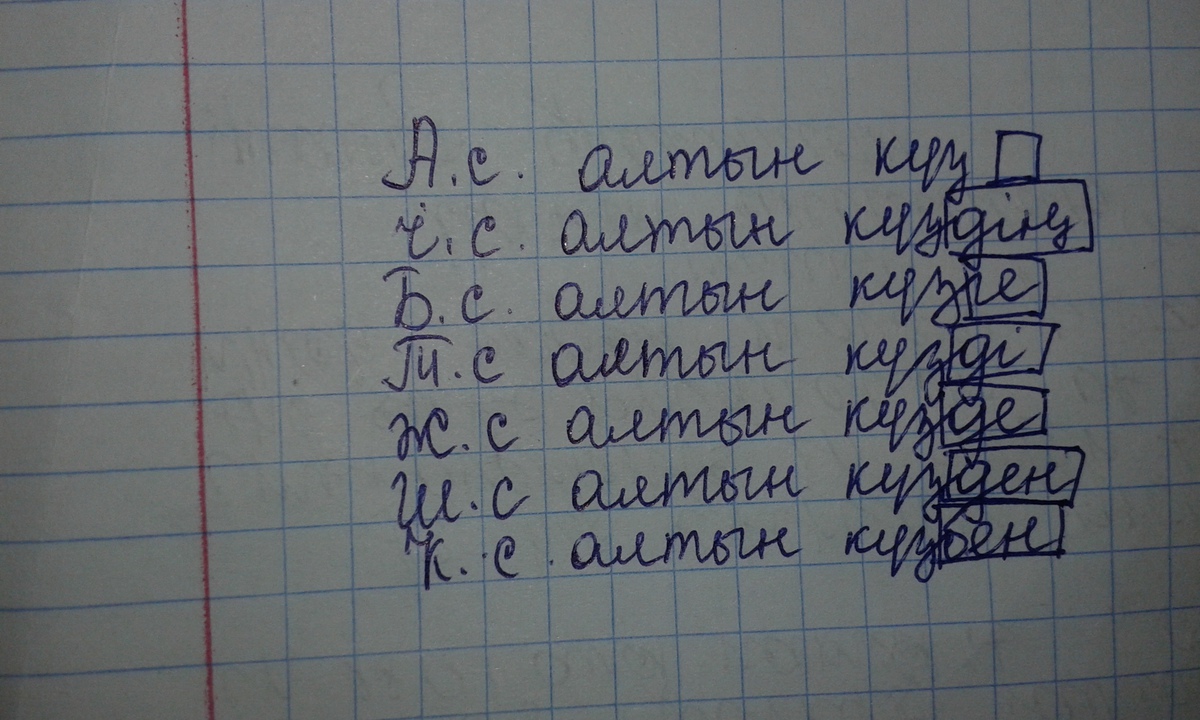 А.с. алтын күз
І.с. алтын күздің
Б.с. алтын күзге
Т.с алтын күзді
Ж.с алтын күзде
Ш.с алтын күзден
К.с. алтын күзбен